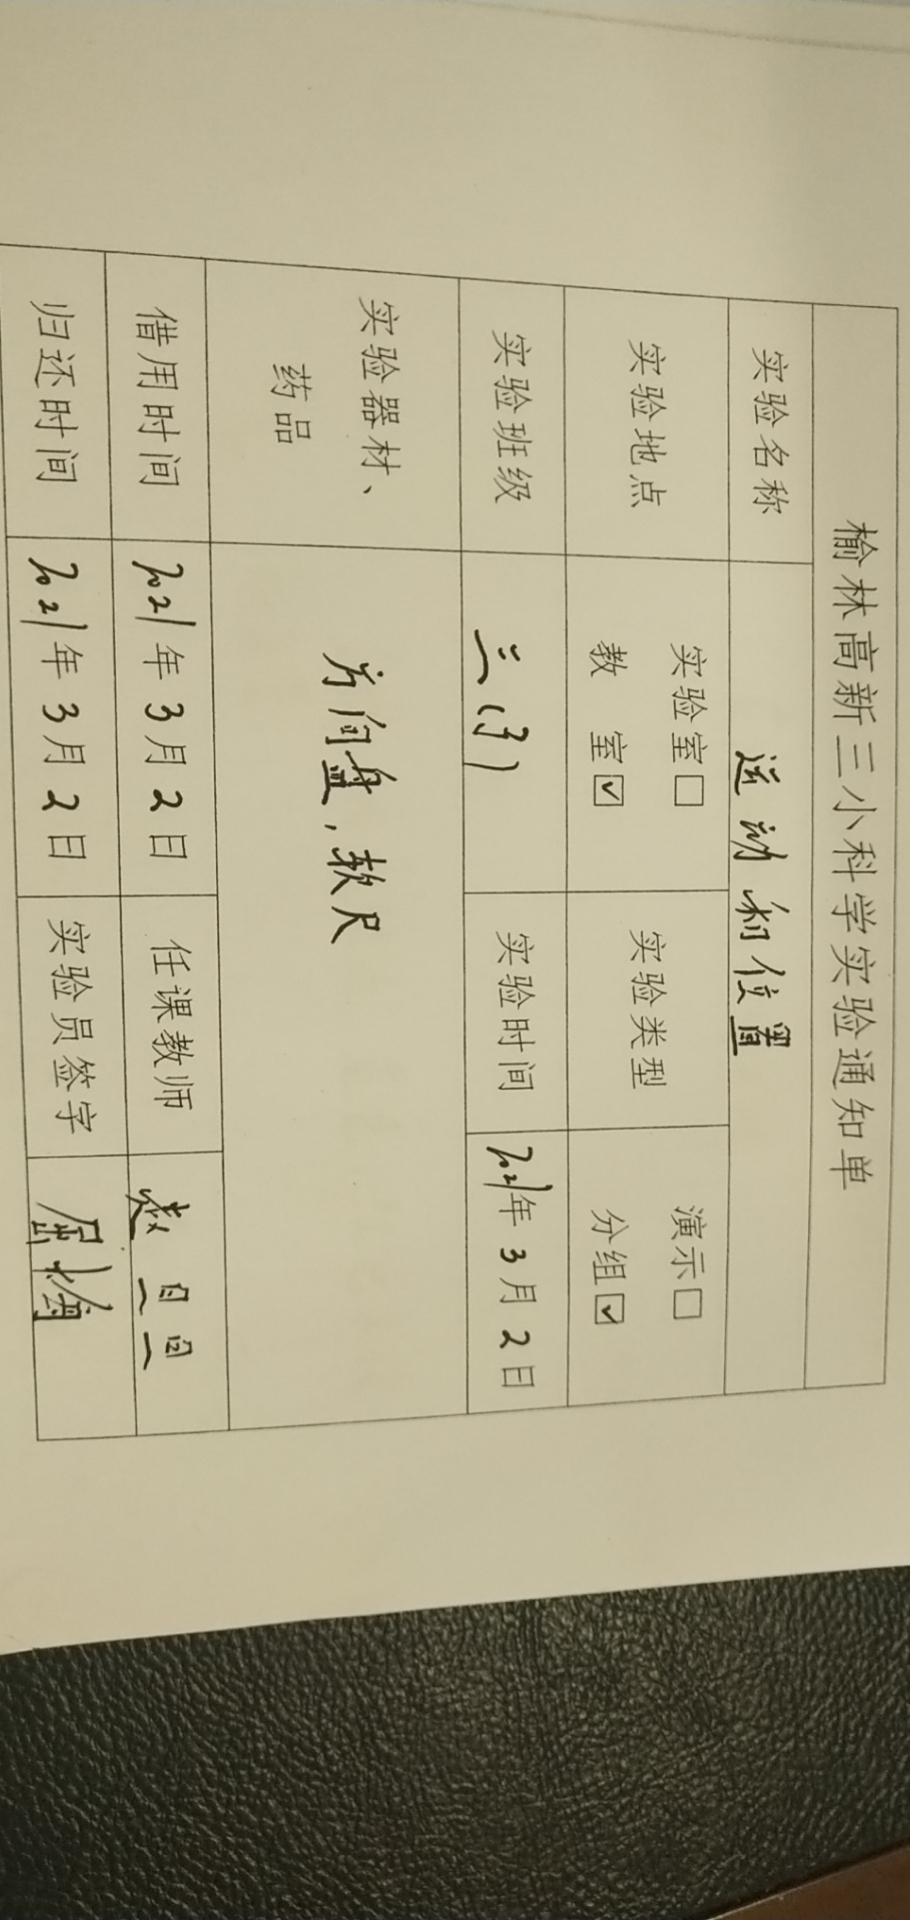 榆林高新三小科学实验通知单
实验名称 运动和位置
实验地点 实验室□ 教 室☑ 实验类型 演示□ 分组☑
实验班级 三(3) 实验时间 2021年3月2日
实验器材、药品 方向盘,软尺
借用时间 2021年3月2日 任课教师
归还时间 2021年3月2日 实验员签字 屈梅